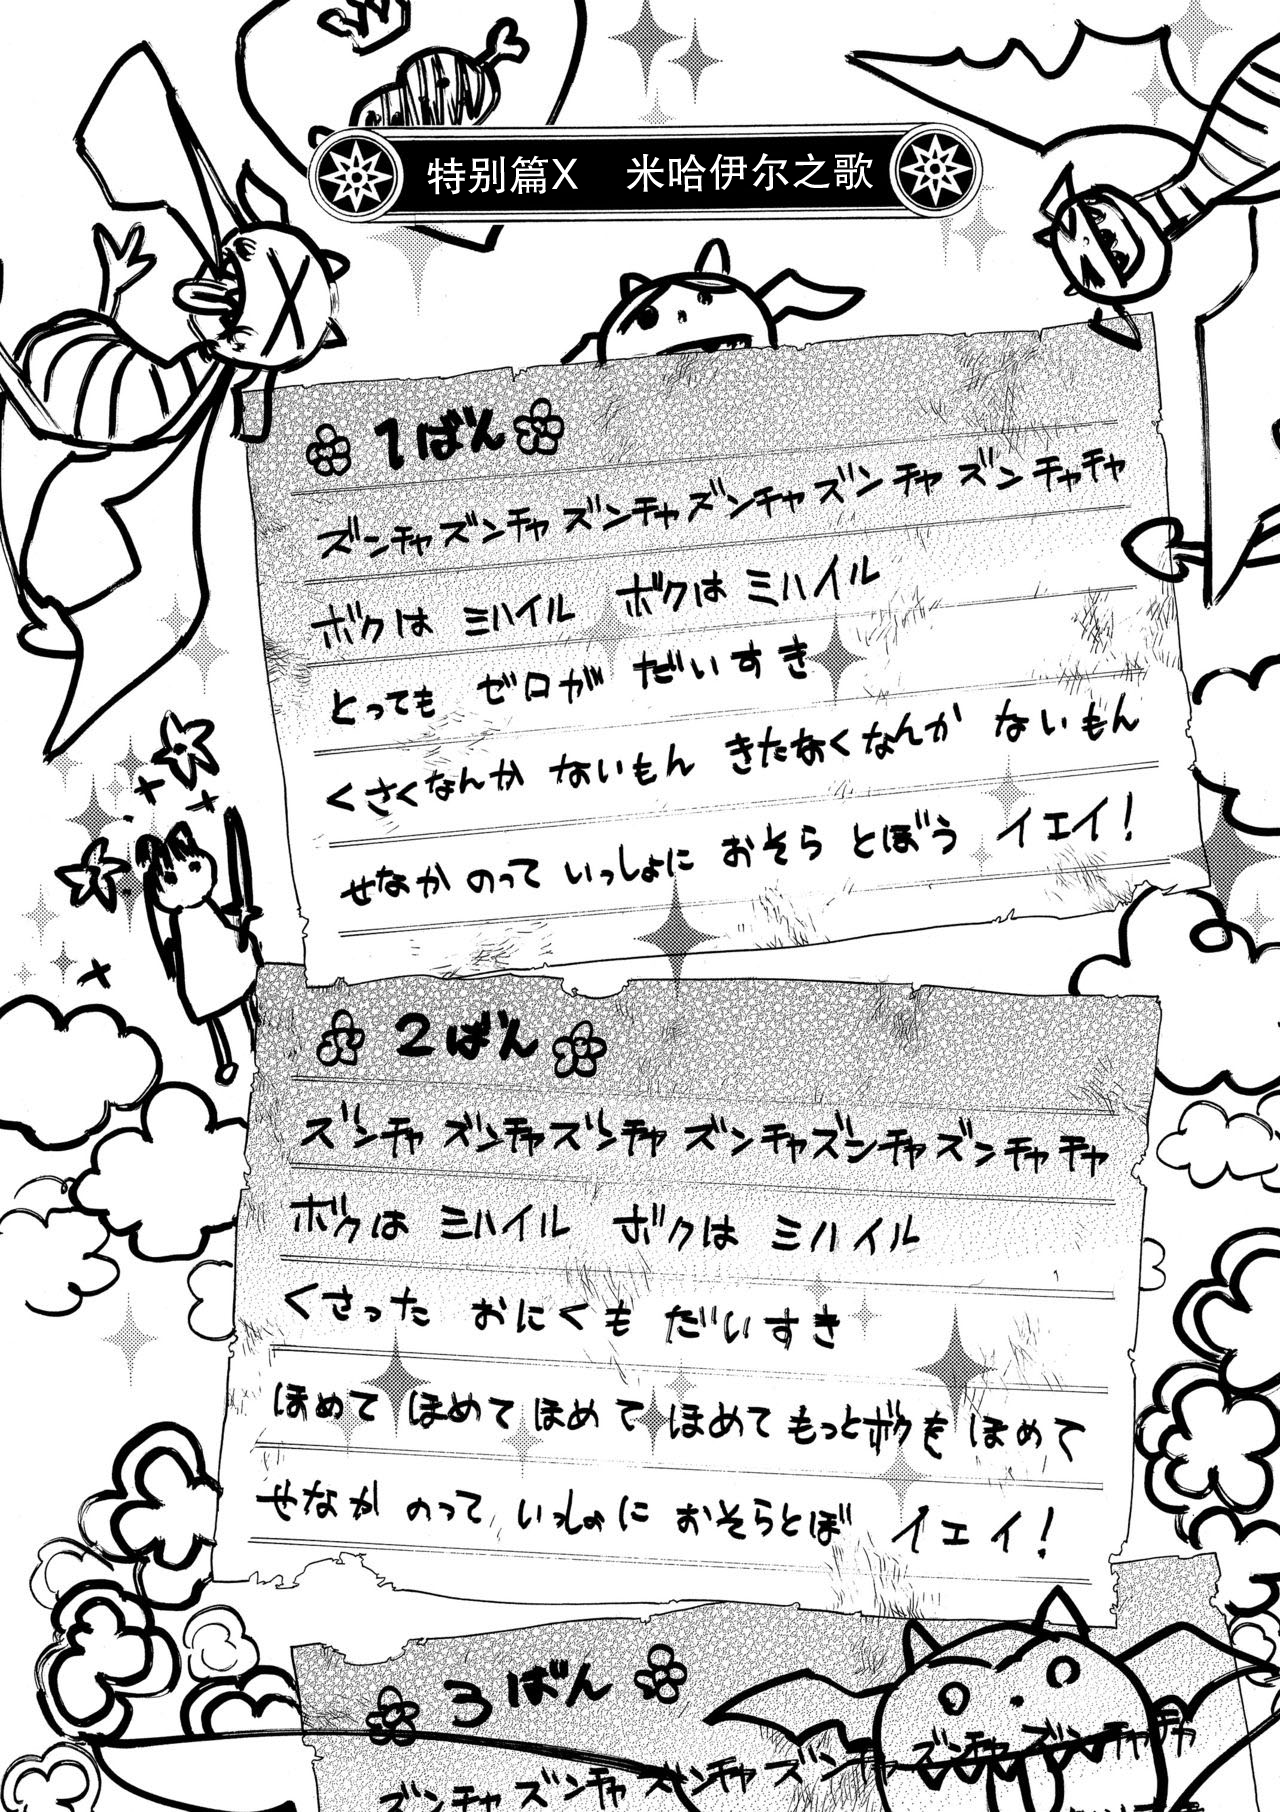 特别篇X 米哈伊尔之歌
1ばん
ズンチャズンチャズンチャズンチャズンチャズンチャチャ
ボクは ミハイル ボクは ミハイル
とっても ゼロが だいすき
くさくなんか ないもん きたなくなんか ないもん
せなか のって いっしょに おそら とぼう イエイ!
2ばん
ズンチャズンチャズンチャズンチャズンチャズンチャチャ
ボクは ミハイル ボクは ミハイル
くさった おにくも だいすき
ほめて ほめて ほめて ほめて もっとボクを ほめて
せなか のって いっしょに おそらとぼ イエイ!
3ばん
ズンチャズンチャズンチャズンチャズンチャズンチャチャ